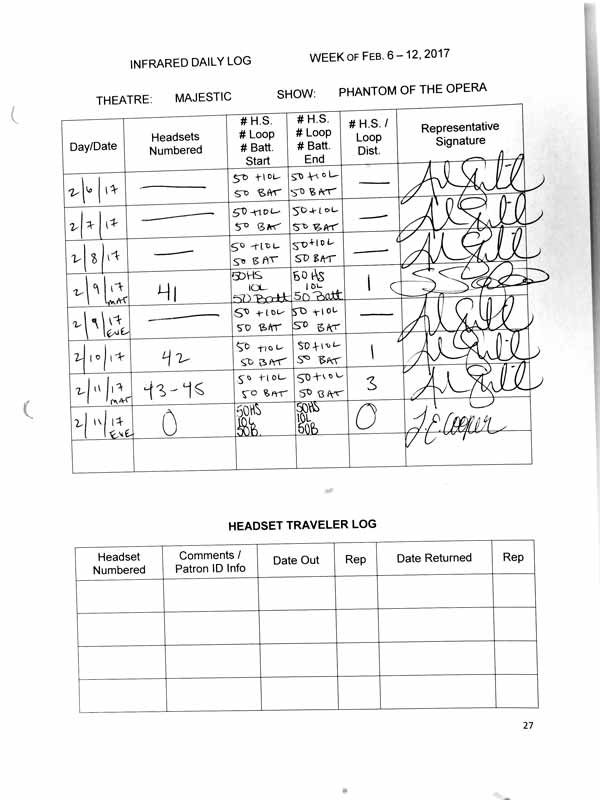 INFRARED DAILY LOG WEEK OF FEB. 6 – 12, 2017
THEATRE: MAJESTIC SHOW: PHANTOM OF THE OPERA
Day/Date Headsets Numbered # H.S. # Loop # Batt. Start # H.S. # Loop # Batt. End # H.S. / Loop Dist. Representative Signature
2/6/17 — 50 +10L 50 BAT 50 +10L 50 BAT —
2/7/17 — 50 +10L 50 BAT 50 +10L 50 BAT —
2/8/17 — 50 +10L 50 BAT 50 +10L 50 BAT —
2/9/17 MAT 41 50HS 10L 50 Batt 50 HS 10L 50 Batt 1
2/9/17 EVE — 50 +10L 50 BAT 50 +10L 50 BAT —
2/10/17 42 50 +10L 50 BAT 50 +10L 50 BAT 1
2/11/17 MAT 43-45 50 +10L 50 BAT 50 +10L 50 BAT 3
2/11/17 EVE 0 50HS 10L 50B. 50HS 10L 50B 0 J.E. Cooper
HEADSET TRAVELER LOG
Headset Numbered Comments / Patron ID Info Date Out Rep Date Returned Rep
27